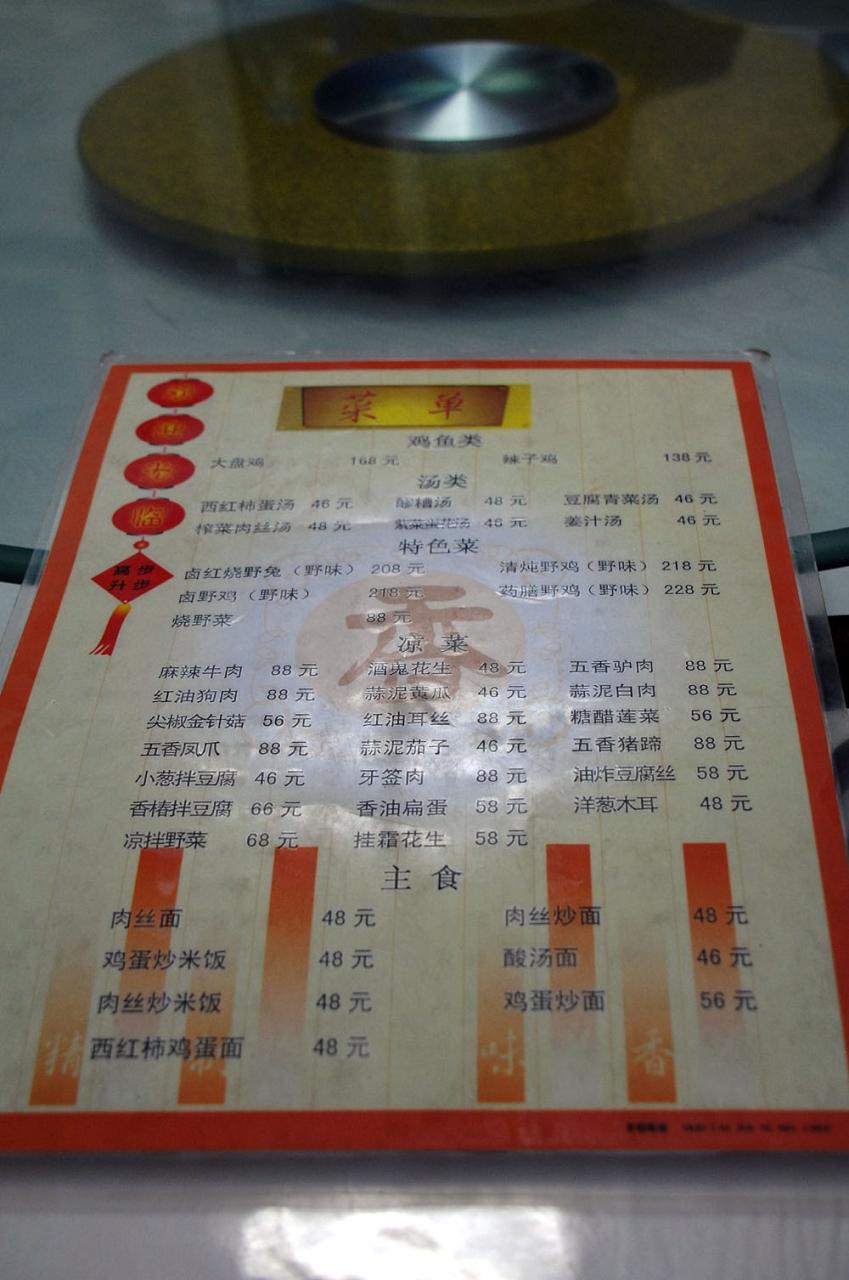 菜 单
鸡鱼类
大盘鸡 168 元 辣子鸡 138 元
汤类
西红柿蛋汤 46 元 醪糟汤 48 元 豆腐青菜汤 46 元
榨菜肉丝汤 48 元 紫菜蛋花汤 46 元 姜汁汤 46 元
特色菜
卤红烧野兔（野味） 208 元 清炖野鸡（野味） 218 元
卤野鸡（野味） 218 元 药膳野鸡（野味） 228 元
烧野菜 88 元
凉 菜
麻辣牛肉 88 元 酒鬼花生 48 元 五香驴肉 88 元
红油狗肉 88 元 蒜泥黄瓜 46 元 蒜泥白肉 88 元
尖椒金针菇 56 元 红油耳丝 88 元 糖醋莲菜 56 元
五香凤爪 88 元 蒜泥茄子 46 元 五香猪蹄 88 元
小葱拌豆腐 46 元 牙签肉 88 元 油炸豆腐丝 58 元
香椿拌豆腐 66 元 香油扁蛋 58 元 洋葱木耳 48 元
凉拌野菜 68 元 挂霜花生 58 元
主 食
肉丝面 48 元 肉丝炒面 48 元
鸡蛋炒米饭 48 元 酸汤面 46 元
肉丝炒米饭 48 元 鸡蛋炒面 56 元
西红柿鸡蛋面 48 元
临
高 步
升 步
香
精 制 味 香